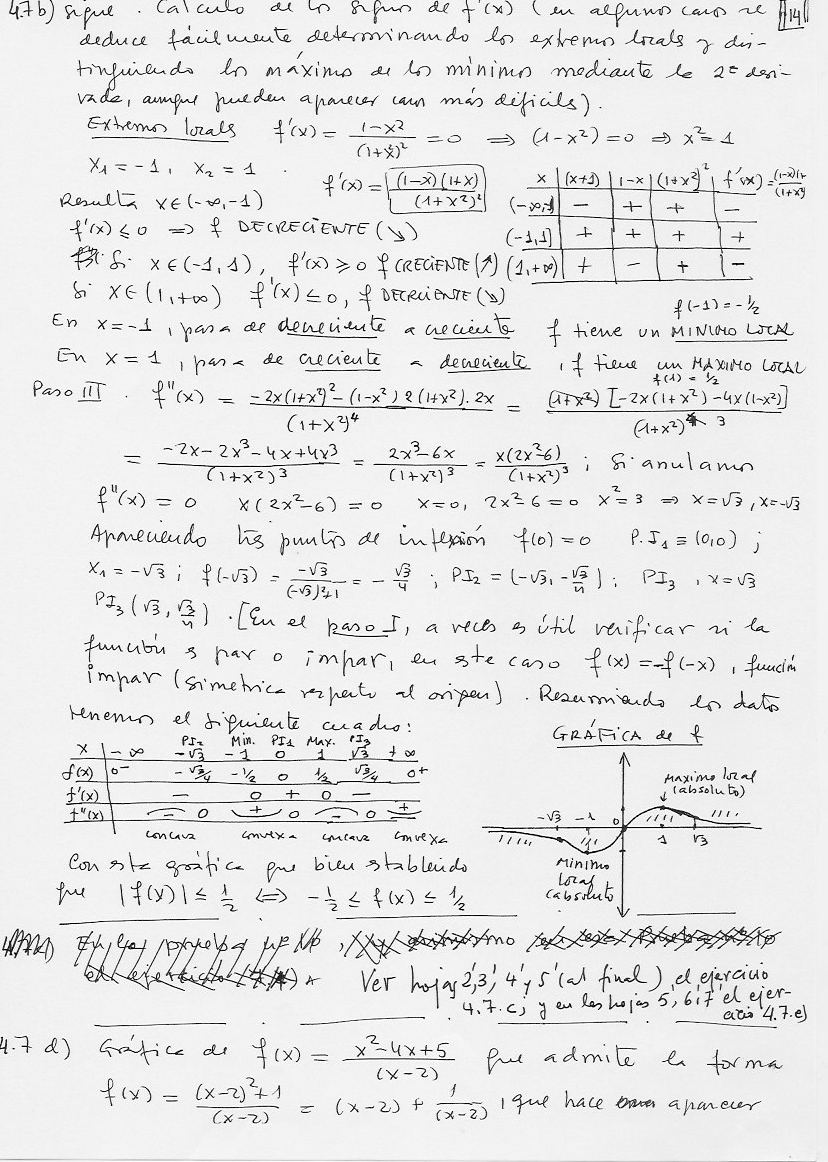 4.7 b) sigue. Cálculo de los signos de f'(x) (en algunos casos se 14
deduce fácilmente determinando los extremos locals y dis-
tinguiendo los máximo de los mínimos mediante la 2ª deri-
vada, aunque pueden aparecer caso más difícils).
Extremos locals f'(x) = (1-x²)/(1+x²)² = 0 ⇒ (1-x²)=0 ⇒ x²=1
x₁ = -1, x₂ = 1. f'(x) = (1-x)(1+x)/(1+x²)²
Resulta x∈(-∞,-1)
f'(x) ≤ 0 ⇒ f DECRECIENTE (↘)
Si x∈(-1,1), f'(x) ≥ 0 f CRECIENTE (↗)
Si x∈(1,+∞) f'(x) ≤ 0, f DECRECIENTE (↘)
x | (x+1) | 1-x | (1+x²)² | f'(x) = (1-x)(1+ / (1+x²)
(-∞,-1) | - | + | + | -
(-1,1] | + | + | + | +
(1,+∞) | + | - | + | -
f(-1) = -1/2
En x=-1, pasa de decreciente a creciente f tiene un MINIMO LOCAL
En x=1, pasa de creciente a decreciente, f tiene un MAXIMO LOCAL
f(1) = 1/2
Paso III. f''(x) = (-2x(1+x²)² - (1-x²) 2 (1+x²). 2x)/(1+x²)⁴ = (1+x²) [-2x(1+x²) - 4x(1-x²)]/(1+x²)³
= (-2x-2x³-4x+4x³)/(1+x²)³ = (2x³-6x)/(1+x²)³ = x(2x²-6)/(1+x²)³ ; Si anulamos
f''(x) = 0 x(2x²-6) = 0 x=0, 2x²-6=0 x²=3 ⇒ x=√3, x=-√3
Apareciendo tres puntos de inflexión f(0)=0 P.I₁ ≡ (0,0) ;
x₁ = -√3 ; f(-√3) = -√3/((-√3)²+1) = -√3/4 ; PI₂ = (-√3, -√3/4) ; PI₃, x=√3
PI₃ (√3, √3/4). [En el paso I, a veces es útil verificar si la
función es par o impar, en este caso f(x) = -f(-x), función
impar (simetrica respecto al origen). Resumiendo los datos
tenemos el siguiente cuadro:
PI₂ Min. PI₁ Max. PI₃
x | -∞ -√3 -1 0 1 √3 +∞
f(x) | 0⁻ -√3/4 -1/2 0 1/2 √3/4 0⁺
f'(x) | - 0 + 0 -
f''(x) | - 0 + 0 - 0 +
concava convexa concava convexa
GRÁFICA de f
Maximo local
(absoluto)
-√3 -1 0 1 √3
Minimo
local
(absoluto)
Con esta gráfica que bien establecido
que |f(x)| ≤ 1/2 ⇔ -1/2 ≤ f(x) ≤ 1/2
Ver hojas 2', 3', 4' y 5' (al final) el ejercicio
4.7.c; y en las hojas 5, 6 i 7' el ejer-
cicio 4.7.e)
4.7 d) Gráfica de f(x) = (x²-4x+5)/(x-2) que admite la forma
f(x) = ((x-2)²+1)/(x-2) = (x-2) + 1/(x-2), que hace aparecer